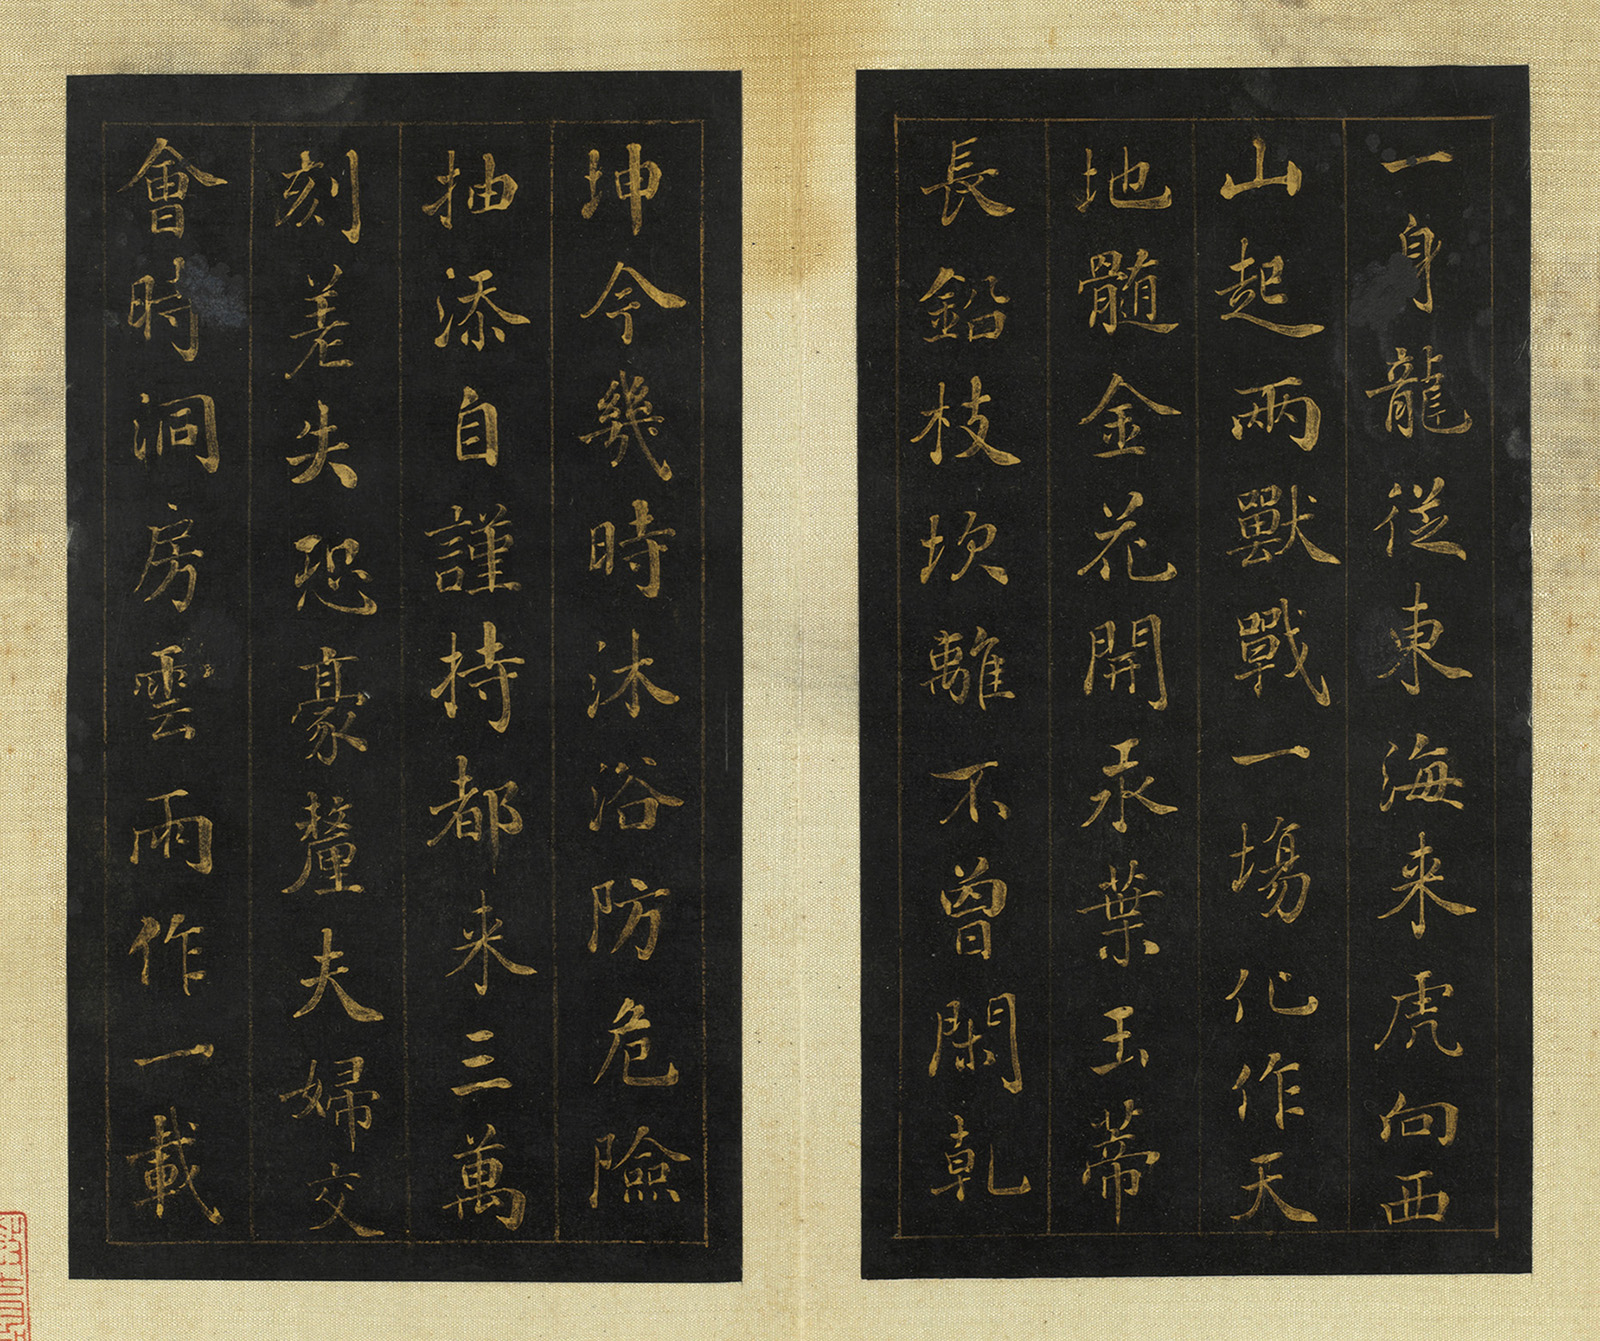 一身龍從東海来虎向西
山起兩獸戰一場化作天
地髓金花開汞葉玉蒂
長鉛枝坎離不曾閑乾
坤今幾時沐浴防危險
抽添自謹持都来三萬
刻差失恐豪釐夫婦交
會時洞房雲雨作一載